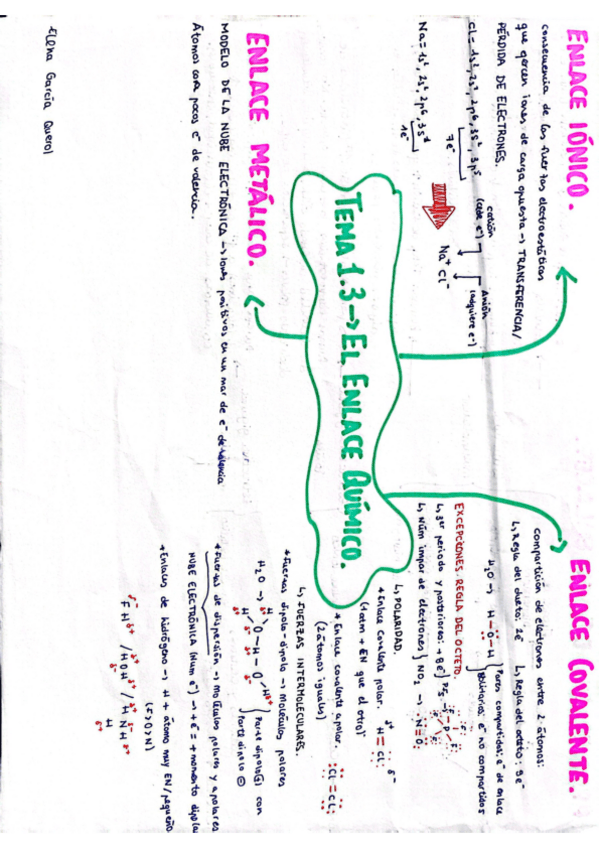 TEMA 1.3 → EL ENLACE QUÍMICO.
ENLACE IÓNICO.
consecuencia de las fuerzas electroestáticas
que ejercen iones de carga opuesta → TRANSFERENCIA/
PÉRDIDA DE ELECTRONES.
Cl = 1s², 2s², 2p⁶, 3s², 3p⁵
7e⁻
Na = 1s², 2s², 2p⁶, 3s¹
1e⁻
catión
(cede e⁻)
Na⁺ Cl⁻
Anión
(adquiere e⁻)
ENLACE METÁLICO.
MODELO DE LA NUBE ELECTRÓNICA → Iones positivos en un mar de e⁻ de valencia
Átomos con pocos e⁻ de valencia.
Elena García Querol
ENLACE COVALENTE.
compartición de electrones entre 2 átomos:
↳ Regla del dueto: 2e⁻ ↳ Regla del octeto: 8e⁻
H₂O → H-O-H
Pares compartidos: e⁻ de enlace
Solitarios: e⁻ no compartidos
EXCEPCIONES REGLA DEL OCTETO.
↳ 3er periodo y posteriores: + 8e⁻
↳ Núm impar de electrones} NO₂ →
↳ POLARIDAD.
+ Enlace covalente polar. H = Cl:
δ+ δ-
(1 átm + EN que el otro)
+ Enlace covalente apolar. :Cl = Cl:
(2 átomos iguales)
↳ FUERZAS INTERMOLECULARES.
+ Fuerzas dipolo-dipolo → Moléculas polares
H₂O →
Parte dipolo ⊕ con
Parte dipolo ⊖
+ Fuerzas de dispersión → Moléculas polares y apolares
NUBE ELECTRÓNICA (Núm e⁻) → + e⁻ = + momento dipolar
+ Enlaces de hidrógeno → H + átomo muy EN/pequeño
(F > O > N)
δ- δ+
F H / H O H / H N H
H